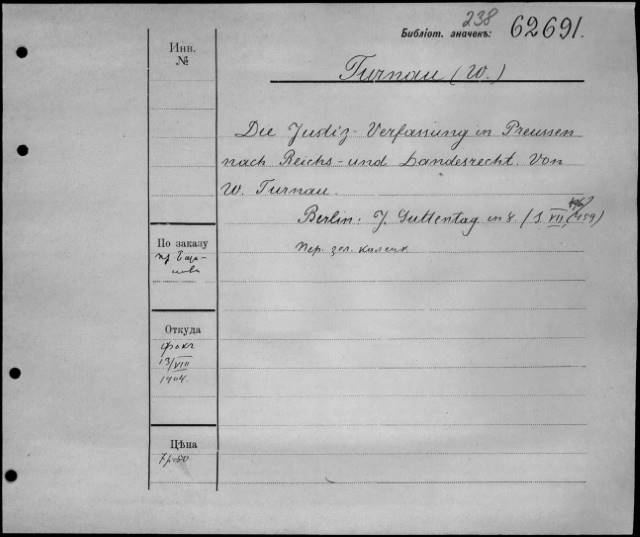 238
Библіот. значекъ: 62691.
Инв.
№
Turnau (W.)
Die Justiz-Verfassung in Preussen
nach Reichs- und Landesrecht. Von
W. Turnau.
Berlin: J. Guttentag in 8 (1 VII, 459)
По заказу
Откуда
13/VIII
1904.
Цѣна